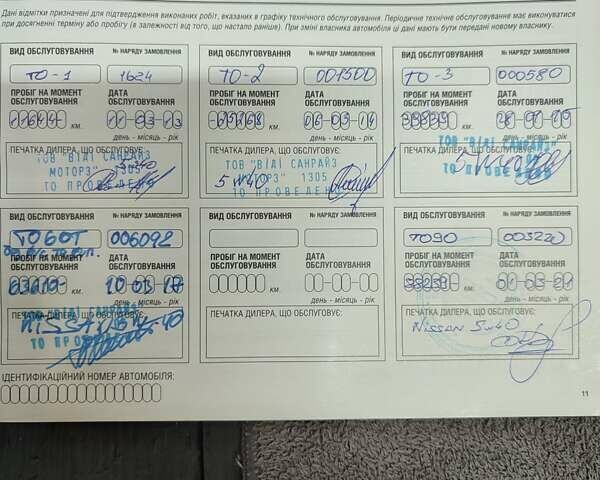 Дані відмітки призначені для підтвердження виконаних робіт, вказаних в графіку технічного обслуговування. Періодичне технічне обслуговування має виконуватися
при досягненні терміну або пробігу (в залежності від того, що настало раніше). При зміні власника автомобіля ці дані мають бути передані новому власнику.
ВИД ОБСЛУГОВУВАННЯ № НАРЯДУ ЗАМОВЛЕННЯ
ТО-1 1624
ПРОБІГ НА МОМЕНТ ОБСЛУГОВУВАННЯ ДАТА ОБСЛУГОВУВАННЯ
11644 км. 11 03 13
день - місяць - рік
ПЕЧАТКА ДИЛЕРА, ЩО ОБСЛУГОВУЄ:
ТОВ "ВІДІ САНРАЙЗ
МОТОРЗ" 1305
ТО ПРОВЕДЕНО
ВИД ОБСЛУГОВУВАННЯ № НАРЯДУ ЗАМОВЛЕННЯ
ТО-2 001500
ПРОБІГ НА МОМЕНТ ОБСЛУГОВУВАННЯ ДАТА ОБСЛУГОВУВАННЯ
км. 06 03 14
день - місяць - рік
ПЕЧАТКА ДИЛЕРА, ЩО ОБСЛУГОВУЄ:
ТОВ "ВІДІ САНРАЙЗ
МОТОРЗ" 1305
5w40
ТО ПРОВЕДЕНО
ВИД ОБСЛУГОВУВАННЯ № НАРЯДУ ЗАМОВЛЕННЯ
ТО-3 000580
ПРОБІГ НА МОМЕНТ ОБСЛУГОВУВАННЯ ДАТА ОБСЛУГОВУВАННЯ
км.
день - місяць - рік
ПЕЧАТКА ДИЛЕРА, ЩО ОБСЛУГОВУЄ:
ТОВ "ВІДІ САНРАЙЗ
ТО ПРОВЕДЕНО
ВИД ОБСЛУГОВУВАННЯ № НАРЯДУ ЗАМОВЛЕННЯ
ТО60Т 006092
ПРОБІГ НА МОМЕНТ ОБСЛУГОВУВАННЯ ДАТА ОБСЛУГОВУВАННЯ
км.
день - місяць - рік
ПЕЧАТКА ДИЛЕРА, ЩО ОБСЛУГОВУЄ:
NISSAN
ТО
ВИД ОБСЛУГОВУВАННЯ № НАРЯДУ ЗАМОВЛЕННЯ
ПРОБІГ НА МОМЕНТ ОБСЛУГОВУВАННЯ ДАТА ОБСЛУГОВУВАННЯ
км.
день - місяць - рік
ПЕЧАТКА ДИЛЕРА, ЩО ОБСЛУГОВУЄ:
ВИД ОБСЛУГОВУВАННЯ № НАРЯДУ ЗАМОВЛЕННЯ
ТО90 003220
ПРОБІГ НА МОМЕНТ ОБСЛУГОВУВАННЯ ДАТА ОБСЛУГОВУВАННЯ
км. 01 03 21
день - місяць - рік
ПЕЧАТКА ДИЛЕРА, ЩО ОБСЛУГОВУЄ:
Nissan 5w40
ІДЕНТИФІКАЦІЙНИЙ НОМЕР АВТОМОБІЛЯ:
11